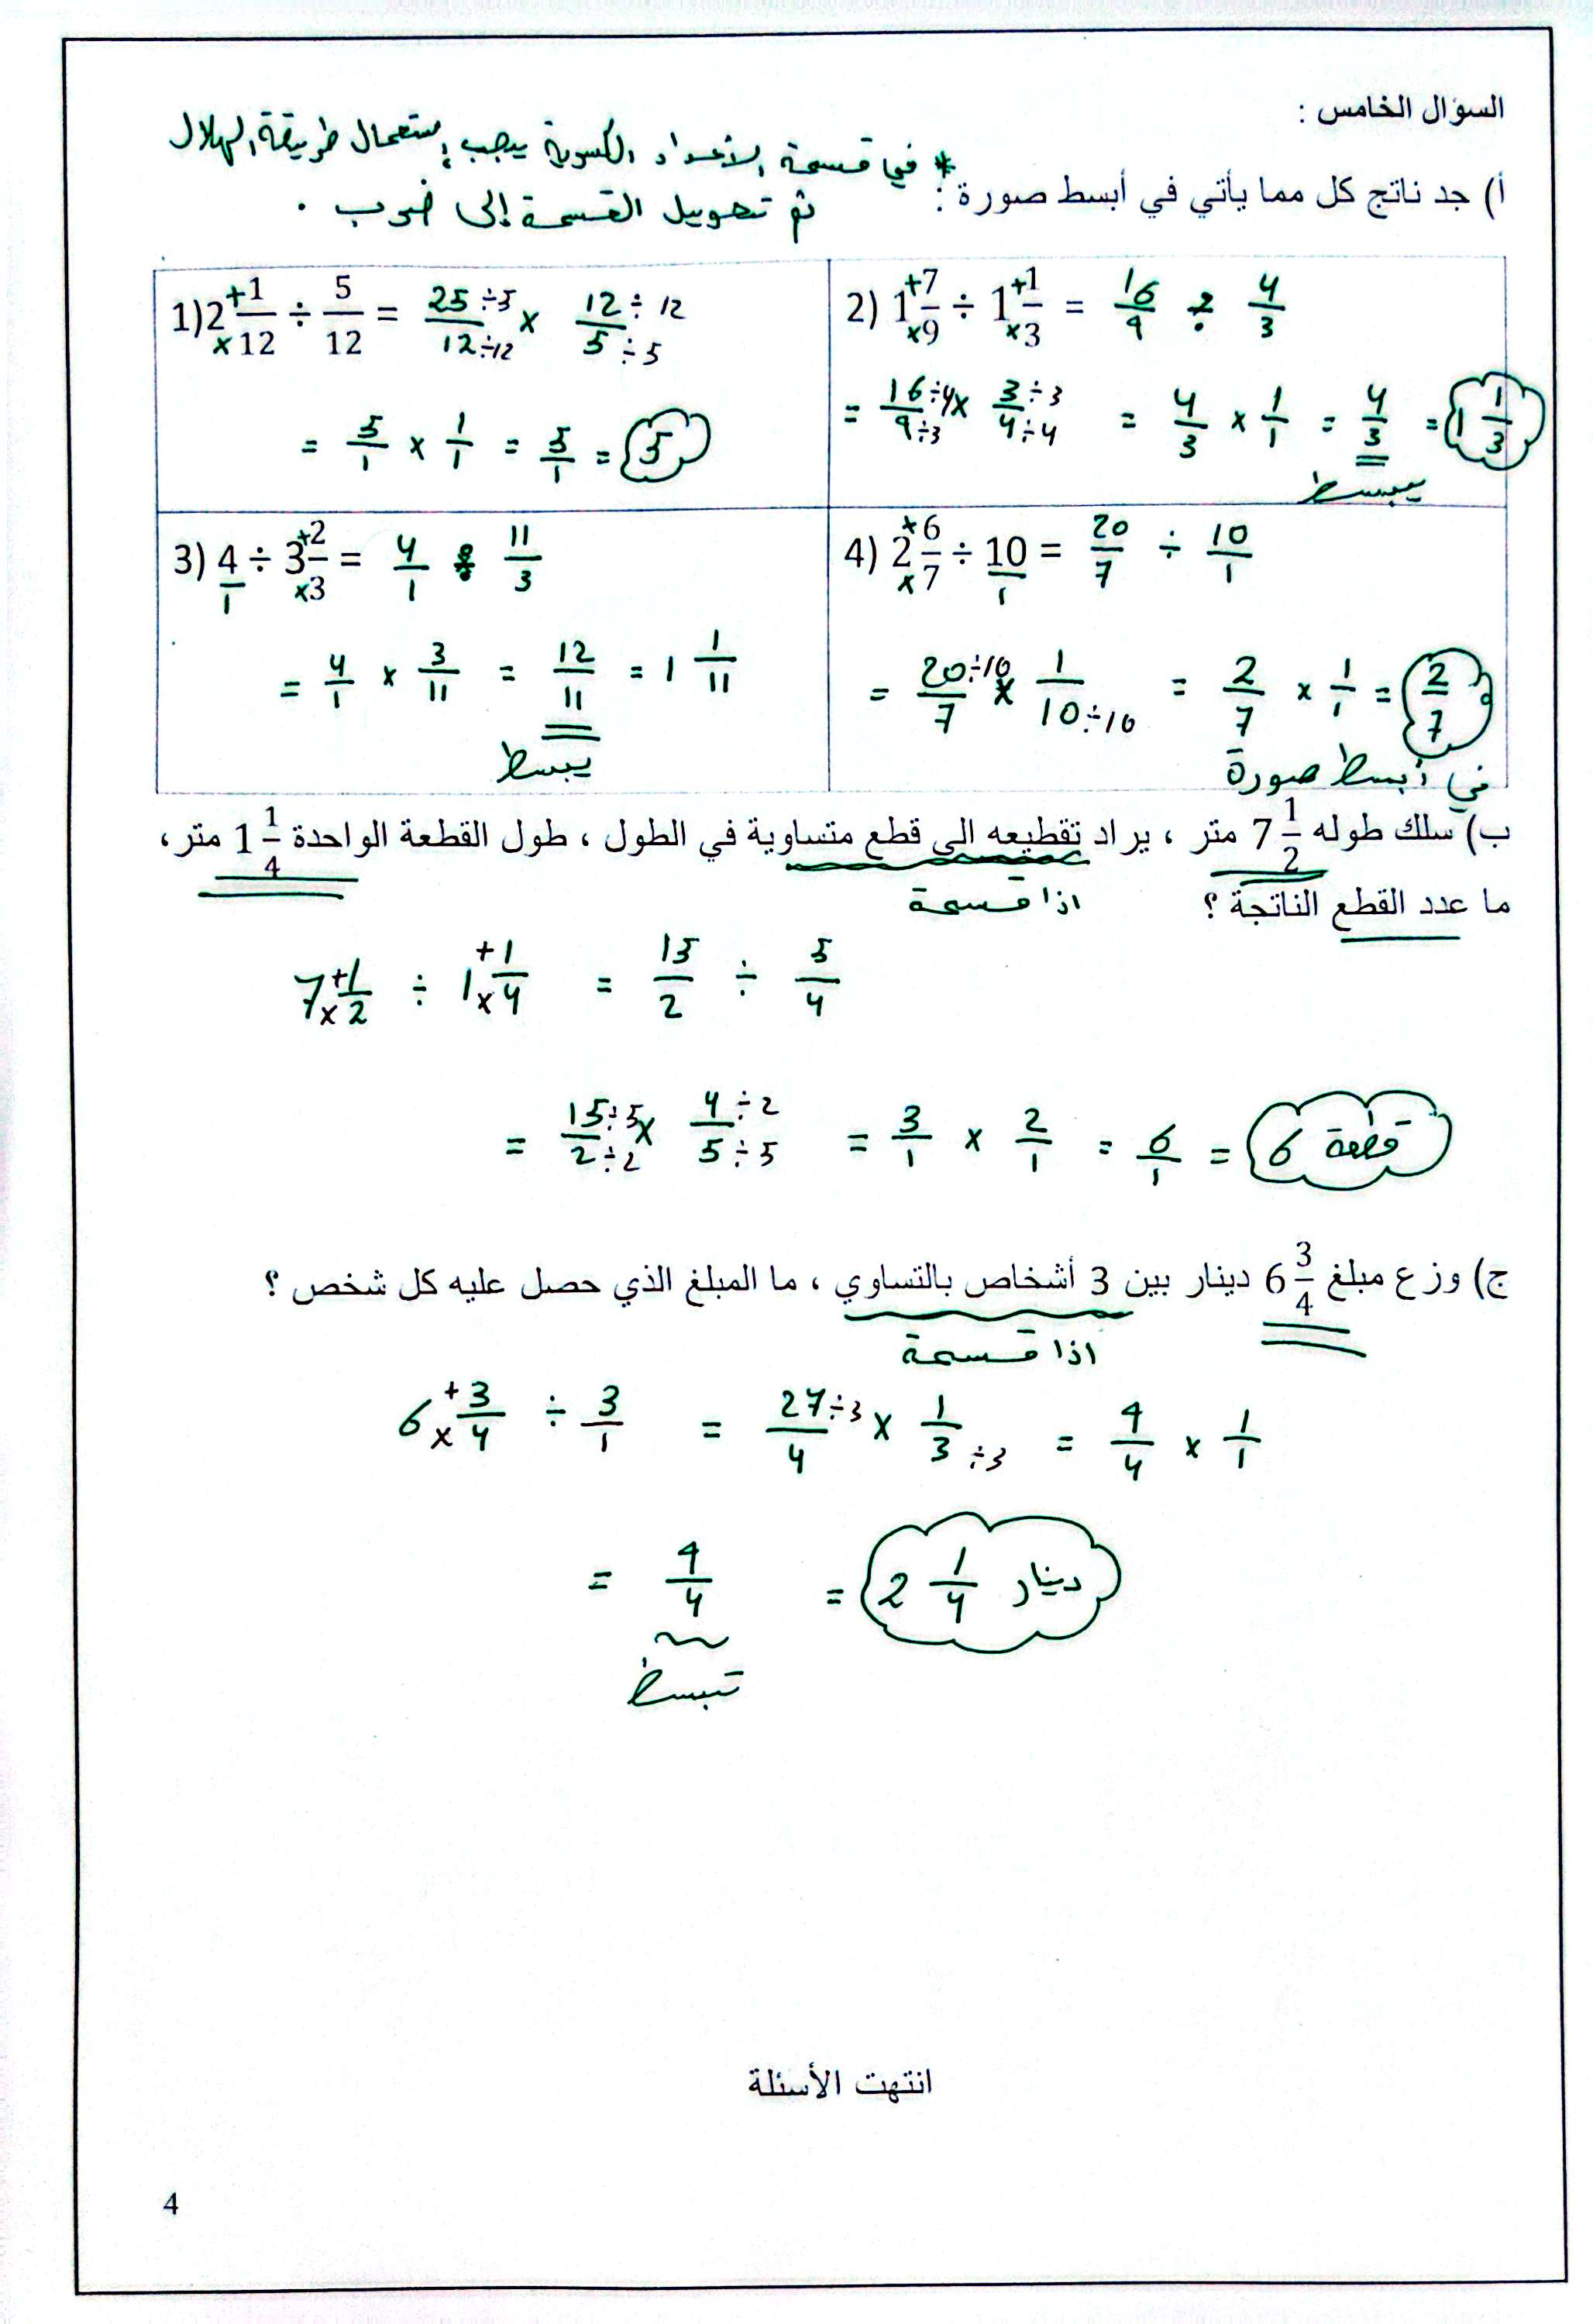 السؤال الخامس :
* في قسمة الأعداد الكسرية يجب إستعمال طريقة الهلال
أ) جد ناتج كل مما يأتي في أبسط صورة :
ثم تحويل القسمة إلى ضرب .
1) 2 +1/×12 ÷ 5/12 = 25÷5/12÷12 × 12÷12/5÷5
= 5/1 × 1/1 = 5/1 = 5
2) 1 +7/×9 ÷ 1 +1/×3 = 16/9 ÷ 4/3
= 16÷4/9÷3 × 3÷3/4÷4 = 4/3 × 1/1 = 4/3 = 1 1/3
يبسط
3) 4/1 ÷ 3 +2/×3 = 4/1 ÷ 11/3
= 4/1 × 3/11 = 12/11 = 1 1/11
يبسط
4) 2 +6/×7 ÷ 10/1 = 20/7 ÷ 10/1
= 20÷10/7 × 1/10÷10 = 2/7 × 1/1 = 2/7
في أبسط صورة
ب) سلك طوله 7 1/2 متر ، يراد تقطيعه الى قطع متساوية في الطول ، طول القطعة الواحدة 1 1/4 متر ،
ما عدد القطع الناتجة ؟
اذا قسمة
7 +1/×2 ÷ 1 +1/×4 = 15/2 ÷ 5/4
= 15÷5/2÷2 × 4÷2/5÷5 = 3/1 × 2/1 = 6/1 = 6 قطعة
ج) وزع مبلغ 6 3/4 دينار بين 3 أشخاص بالتساوي ، ما المبلغ الذي حصل عليه كل شخص ؟
اذا قسمة
6 +3/×4 ÷ 3/1 = 27÷3/4 × 1/3÷3 = 9/4 × 1/1
= 9/4 = 2 1/4 دينار
تبسط
انتهت الأسئلة
4